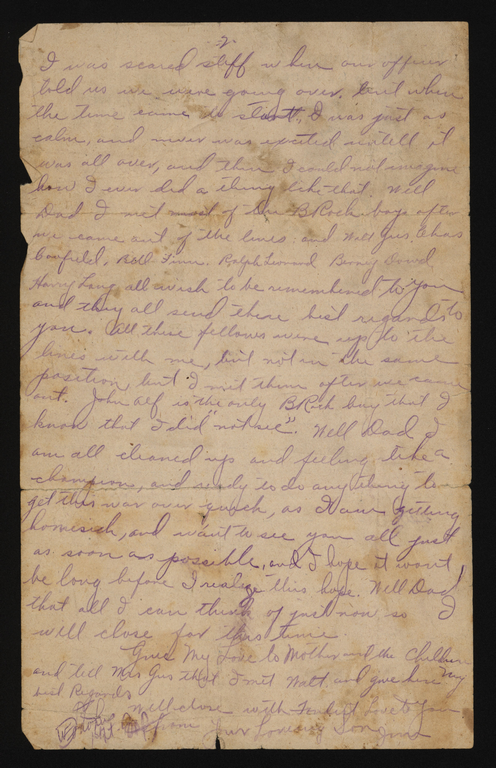 2.
I was scared stiff when our officer
told us we were going over, but when
the time came to start, I was just as
calm, and never was excited untell it
was all over, and then I could not imagine
how I ever did a thing like that. Well
Dad I met most of the BRock boys after
we came out of the lines. and Walt Gus, Chas
Canfield, Ralph Barney Dowd
Harry Lang all wish to be remembered to you
and they all send there best regards to
you. All these fellows were up to the
lines with me, but not in the same
position, but I met them after we came
out. John Alf is the only BRock boy that I
know that I did "not see". Well Dad I
am all cleaned up and feeling like a
champion, and ready to do any thing to
get this war over quick, as I am getting
homesick, and want to see you all just
as soon as possible, and I hope it wont
be long before I realize this hope. Well Dad
that all I can think of just now so I
will close for this time.
Give My Love to Mother and the Children
and tell Mrs Gus that I met Walt and give her my
best Regards
Will close with Love to you
from Your Loveing Son